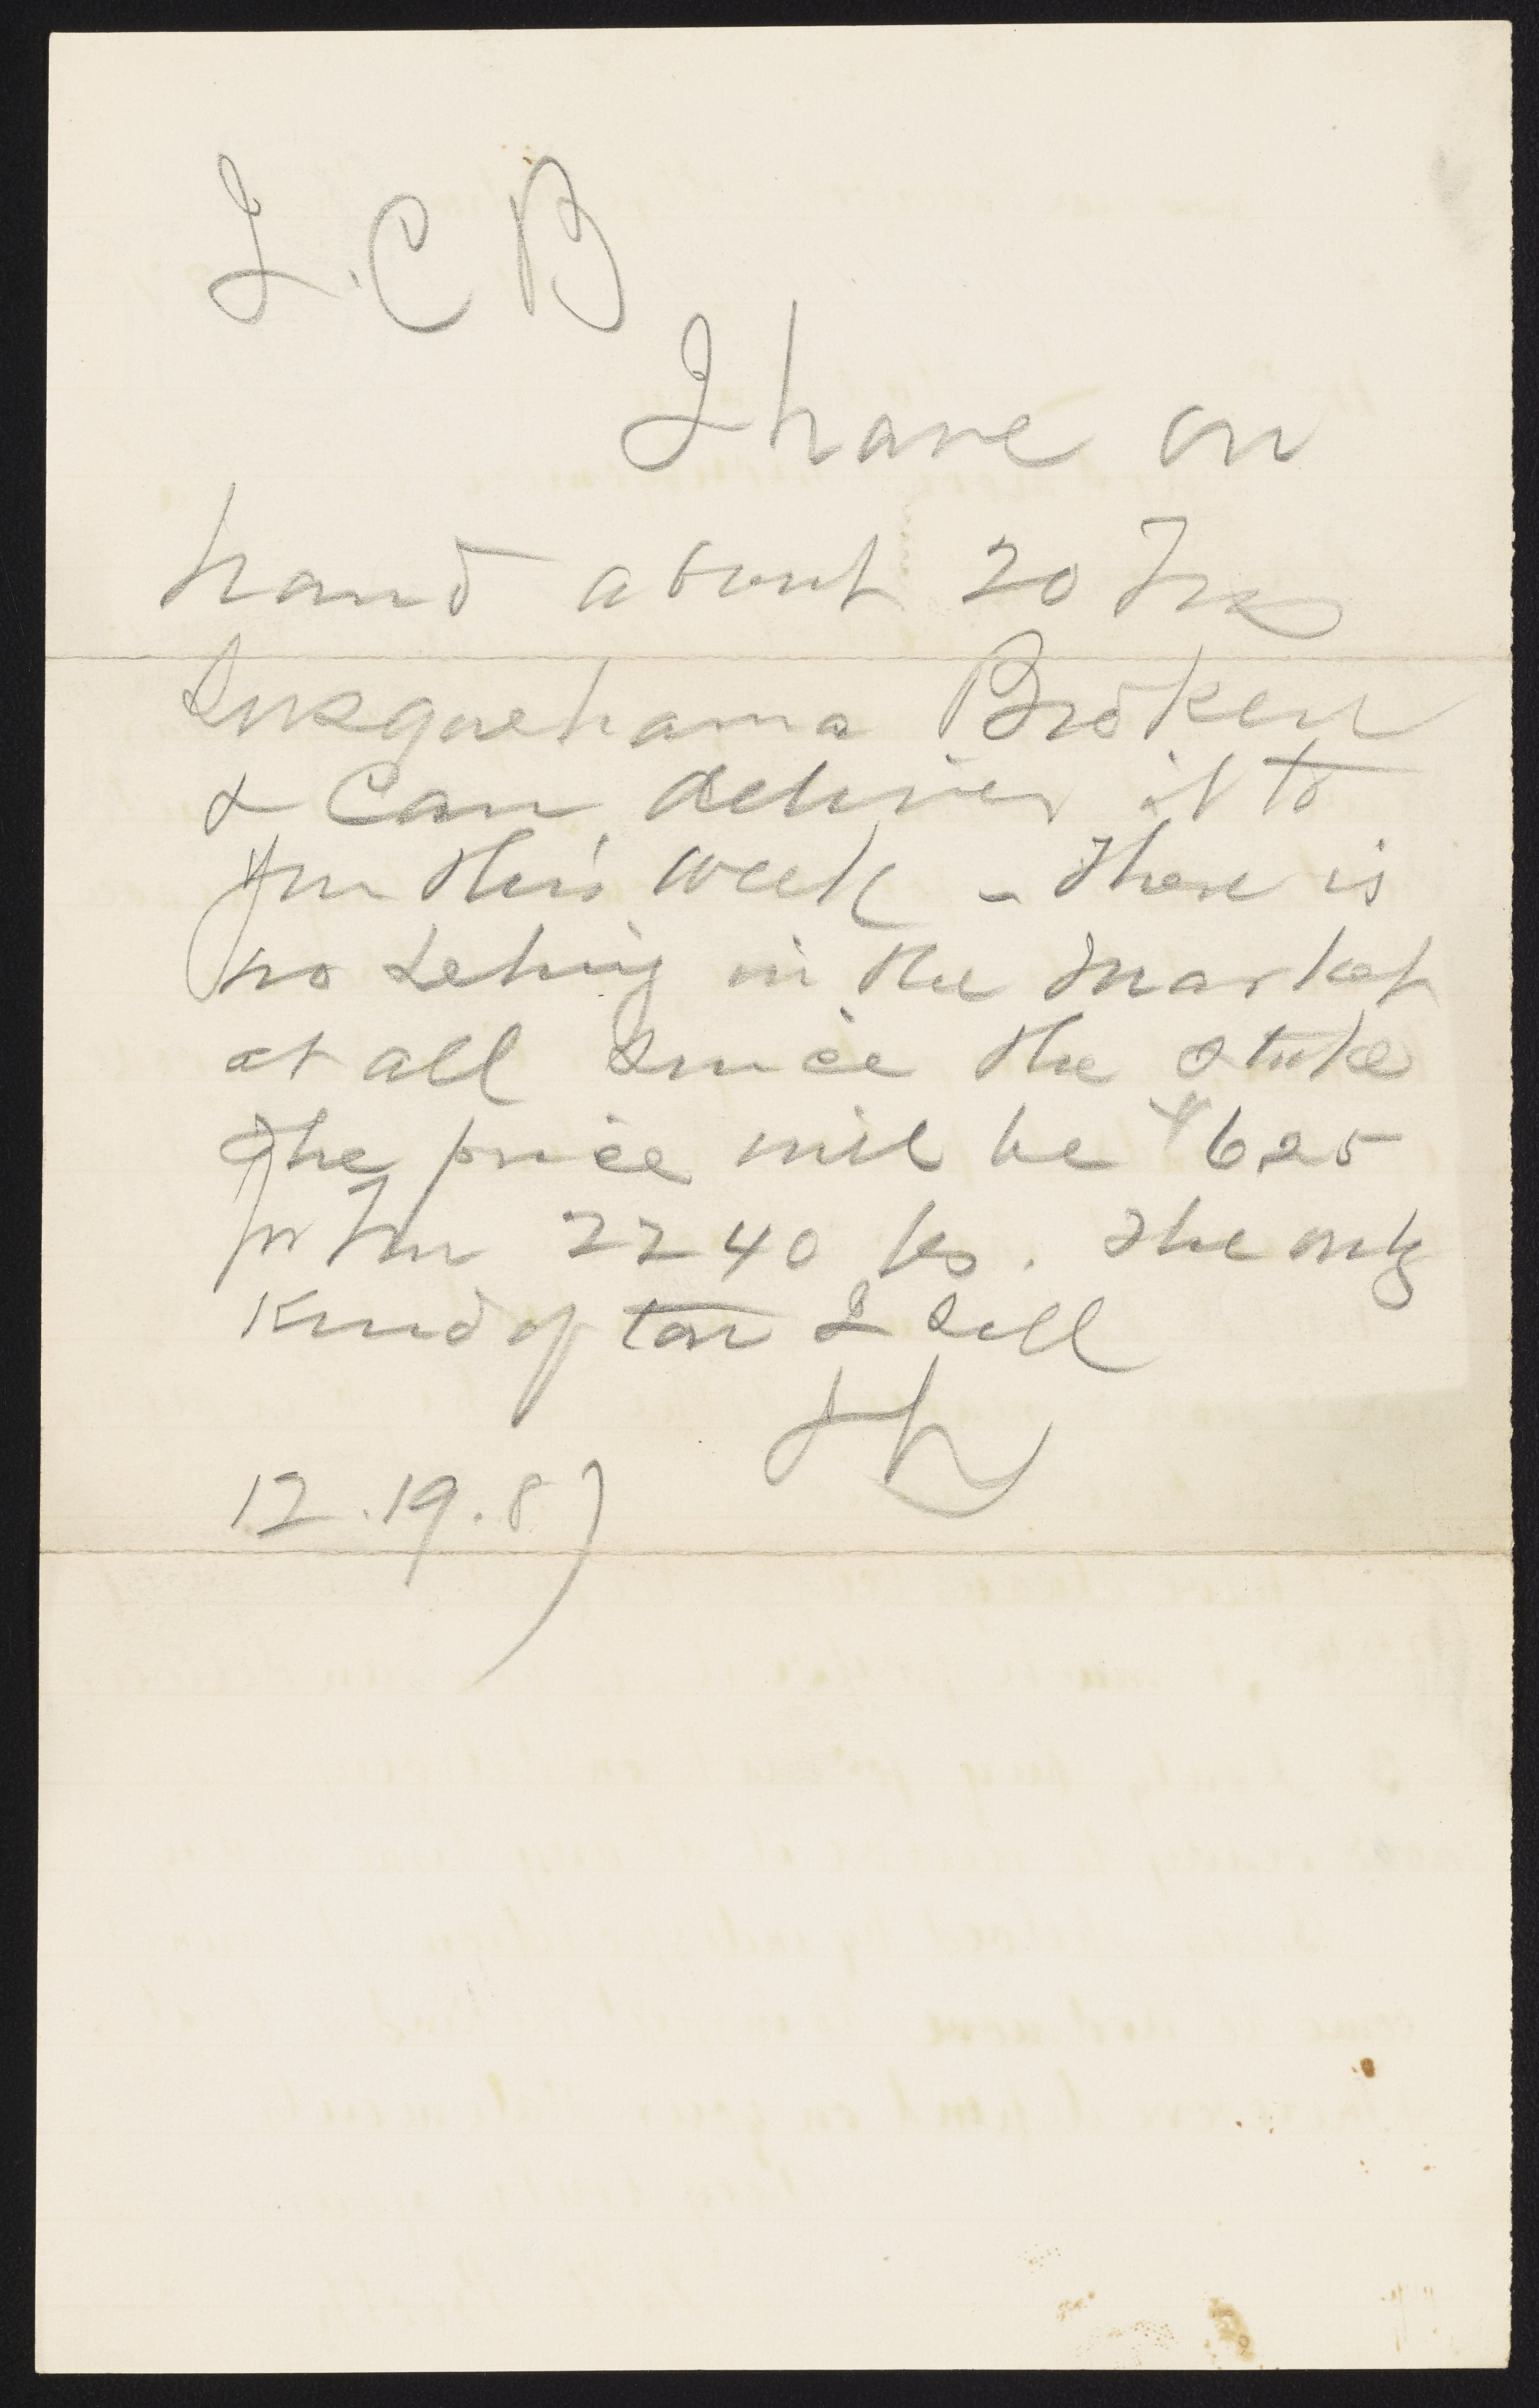 I. C B
I have on
hand about 20 Tns
Susquehanna Broken
& Can deliver it to
you this week - There is
no Lehigh in the market
at all Since the strike
The price will be $6 25
pr Ton 2240 lbs. The only
Kind of ton I Sell
12.19.87